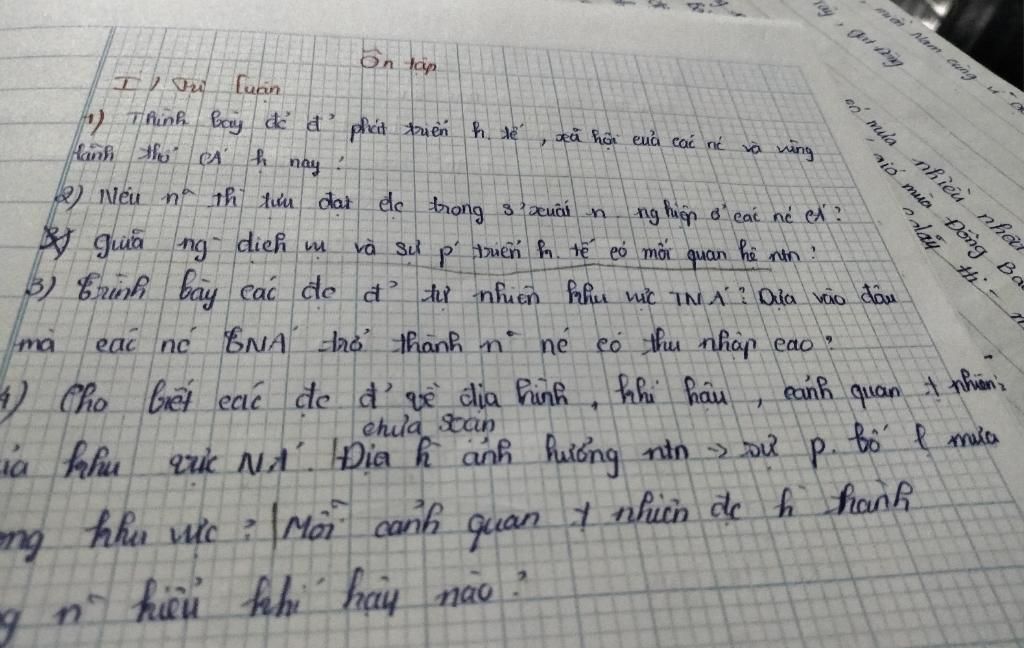 Ôn tập
I, Tự luận
1) Trình bày đc đ' phát triển k. tế, xã hội của các nc và vùng
lãnh thổ CÁ h nay?
2) Nêu n~ th tựu đạt đc trong s' xuất n nghiệp ở các nc CÁ?
giữa ng dịch vụ và sự p' triển k. tế có mối quan hệ ntn?
3) Trình bày các đc đ' tự nhiên khu vực TNÁ? Dựa vào đâu
mà các nc TNÁ trở thành n~ nc có thu nhập cao?
4) Cho biết các đc đ' về địa hình, khí hậu, cảnh quan t nhiên
chưa soạn
khu vực NÁ. Địa h ảnh hưởng ntn -> sự p. bố l mưa
khu vực? Mỗi cảnh quan t nhiên đc h thành
n~ kiểu khí hậu nào?
có mưa nhiều
gió mùa Đông